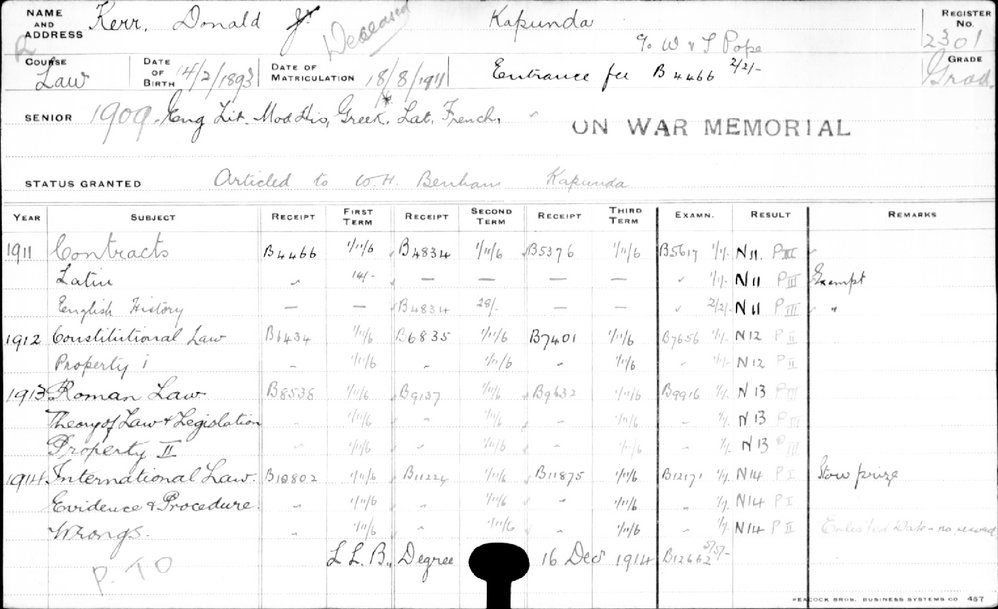 NAME AND ADDRESS Kerr, Donald Jr Deceased Kapunda REGISTER No. 2301
c/o W & T Pope
COURSE Law DATE OF BIRTH 14/2/1893 DATE OF MATRICULATION 18/8/1911 Entrance fee B4466 2/2/- GRADE Grad.
SENIOR 1909. Eng Lit. Mod His, Greek,* Lat, French,
ON WAR MEMORIAL
STATUS GRANTED Articled to W.H. Benham Kapunda
YEAR SUBJECT RECEIPT FIRST TERM RECEIPT SECOND TERM RECEIPT THIRD TERM EXAMN. RESULT REMARKS
1911 Contracts B4466 1/11/6 B4834 1/11/6 B5376 1/11/6 B5617 1/1/- N11 PIII
Latin 14/- — — — — " 1/1/- N11 PIII Exempt
English History — — B4834 28/- — — " 2/2/- N11 PIII "
1912 Constitutional Law B6434 1/11/6 B6835 1/11/6 B7401 1/11/6 B7656 1/1/- N12 PII
Property i " 1/11/6 " 1/11/6 " 1/11/6 " 1/1/- N12 PII
1913 Roman Law B8538 1/11/6 B9137 1/11/6 B9632 1/11/6 B9916 1/1/- N13 PIII
Theory of Law & Legislation " 1/11/6 " 1/11/6 " 1/11/6 1/1/- N13 PIII
Property II " 1/11/6 " 1/11/6 " 1/11/6 " 1/1/- N13 PIII
1914 International Law B10802 1/11/6 B11224 1/11/6 B11875 1/11/6 B12171 1/1/- N14 PI Stow prize
Evidence & Procedure " 1/11/6 " 1/11/6 " 1/11/6 " 1/1/- N14 PI
Wrongs " 1/11/6 " 1/11/6 " 1/11/6 " 1/1/- N14 PII Enlisted Date - no record
L.L.B., Degree 16 Dec 1914 B12662 5/5/-
P.T.O
PEACOCK BROS. BUSINESS SYSTEMS CO 457